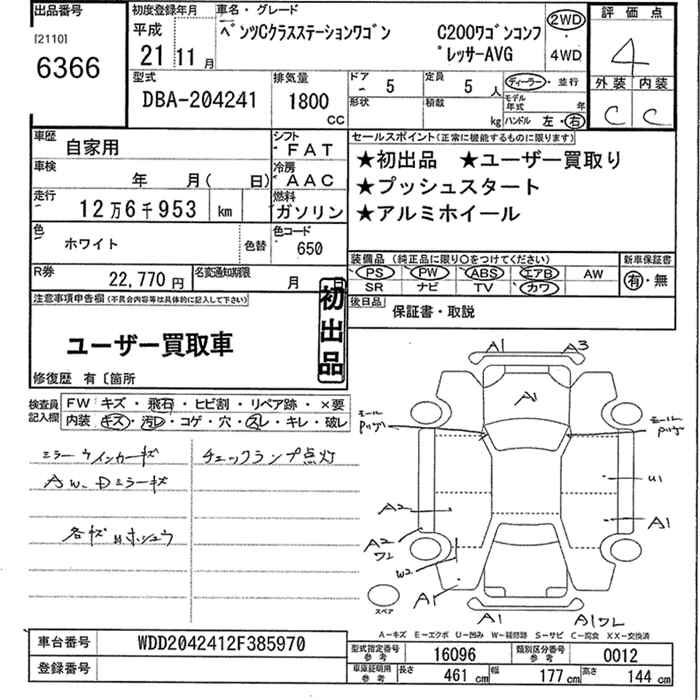 出品番号
[2110]
6366
初度登録年月
平成
21 11 月
車名・グレード
ベンツCクラスステーションワゴン C200ワゴンコンプレッサーAVG
2WD
・
4WD
評価点
4
外装 内装
C C
型式
DBA-204241
排気量
1800
CC
ドア
5
定員
5 人
形状
積載
kg
ディーラー・並行
モデル年式 年
ハンドル 左・右
車歴
自家用
シフト
FAT
車検
年 月( 日)
冷房
AAC
走行
12万6千953 km
燃料
ガソリン
色
ホワイト
色替
色コード
650
R券
22,770円
名変通知期限
月 日
セールスポイント(正常に機能するものに限ります)
★初出品 ★ユーザー買取り
★プッシュスタート
★アルミホイール
装備品 (純正品に限り〇をつけてください)
PS PW ABS エアB AW
SR ナビ TV カワ
新車保証書
有・無
後日品
保証書・取説
注意事項申告欄(不具合内容等は具体的に記入して下さい)
初出品
ユーザー買取車
修復歴 有〔箇所
検査員記入欄
FW キズ・飛石・ヒビ割・リペア跡・×要
内装 キズ・汚レ・コゲ・穴・スレ・キレ・破レ
ミラーウインカーキズ
チェックランプ点灯
AW、Dミラーキズ
各キズ
ホシュウ
A1
A3
A1
モール
モール
A2
U1
A1
A2
ワレ
W2
A1
スペア
A1
A1ワレ
A-キズ E-エクボ U-凹み W-補修跡 S-サビ C-腐食 XX-交換済
車台番号
WDD2042412F385970
登録番号
型式指定番号参考
16096
類別区分番号参考
0012
車庫証明用参考
長さ 461 cm
幅 177 cm
高さ 144 cm